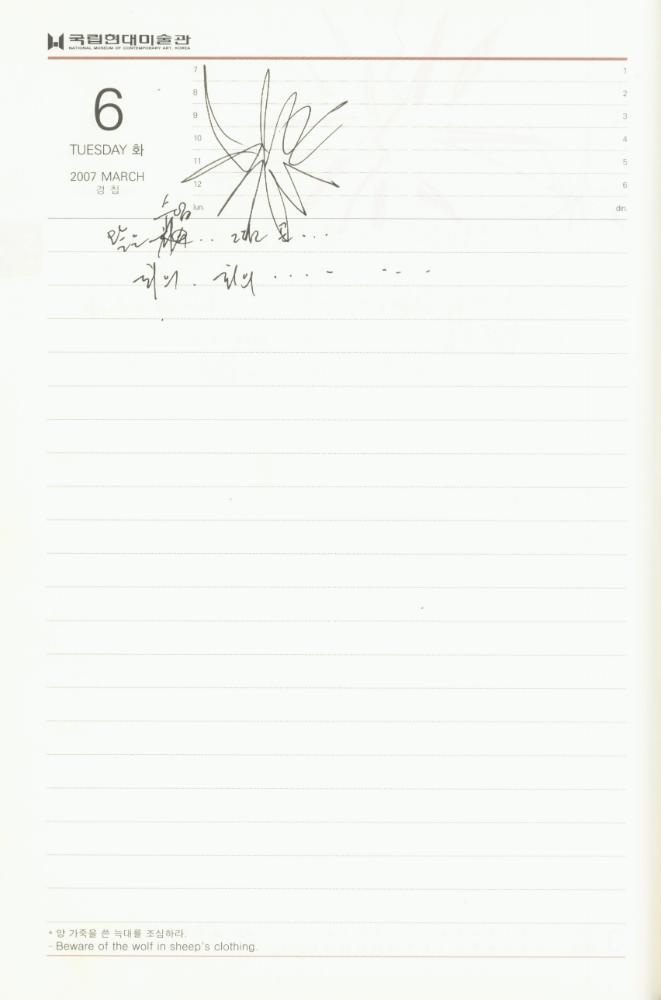 국립현대미술관
NATIONAL MUSEUM OF CONTEMPORARY ART, KOREA
6
TUESDAY 화
2007 MARCH
경칩
7
8
9
10
11
12
lun.
1
2
3
4
5
6
din.
회의 . 회의 . . . . - - - -
* 양 가죽을 쓴 늑대를 조심하라.
- Beware of the wolf in sheep's clothing.